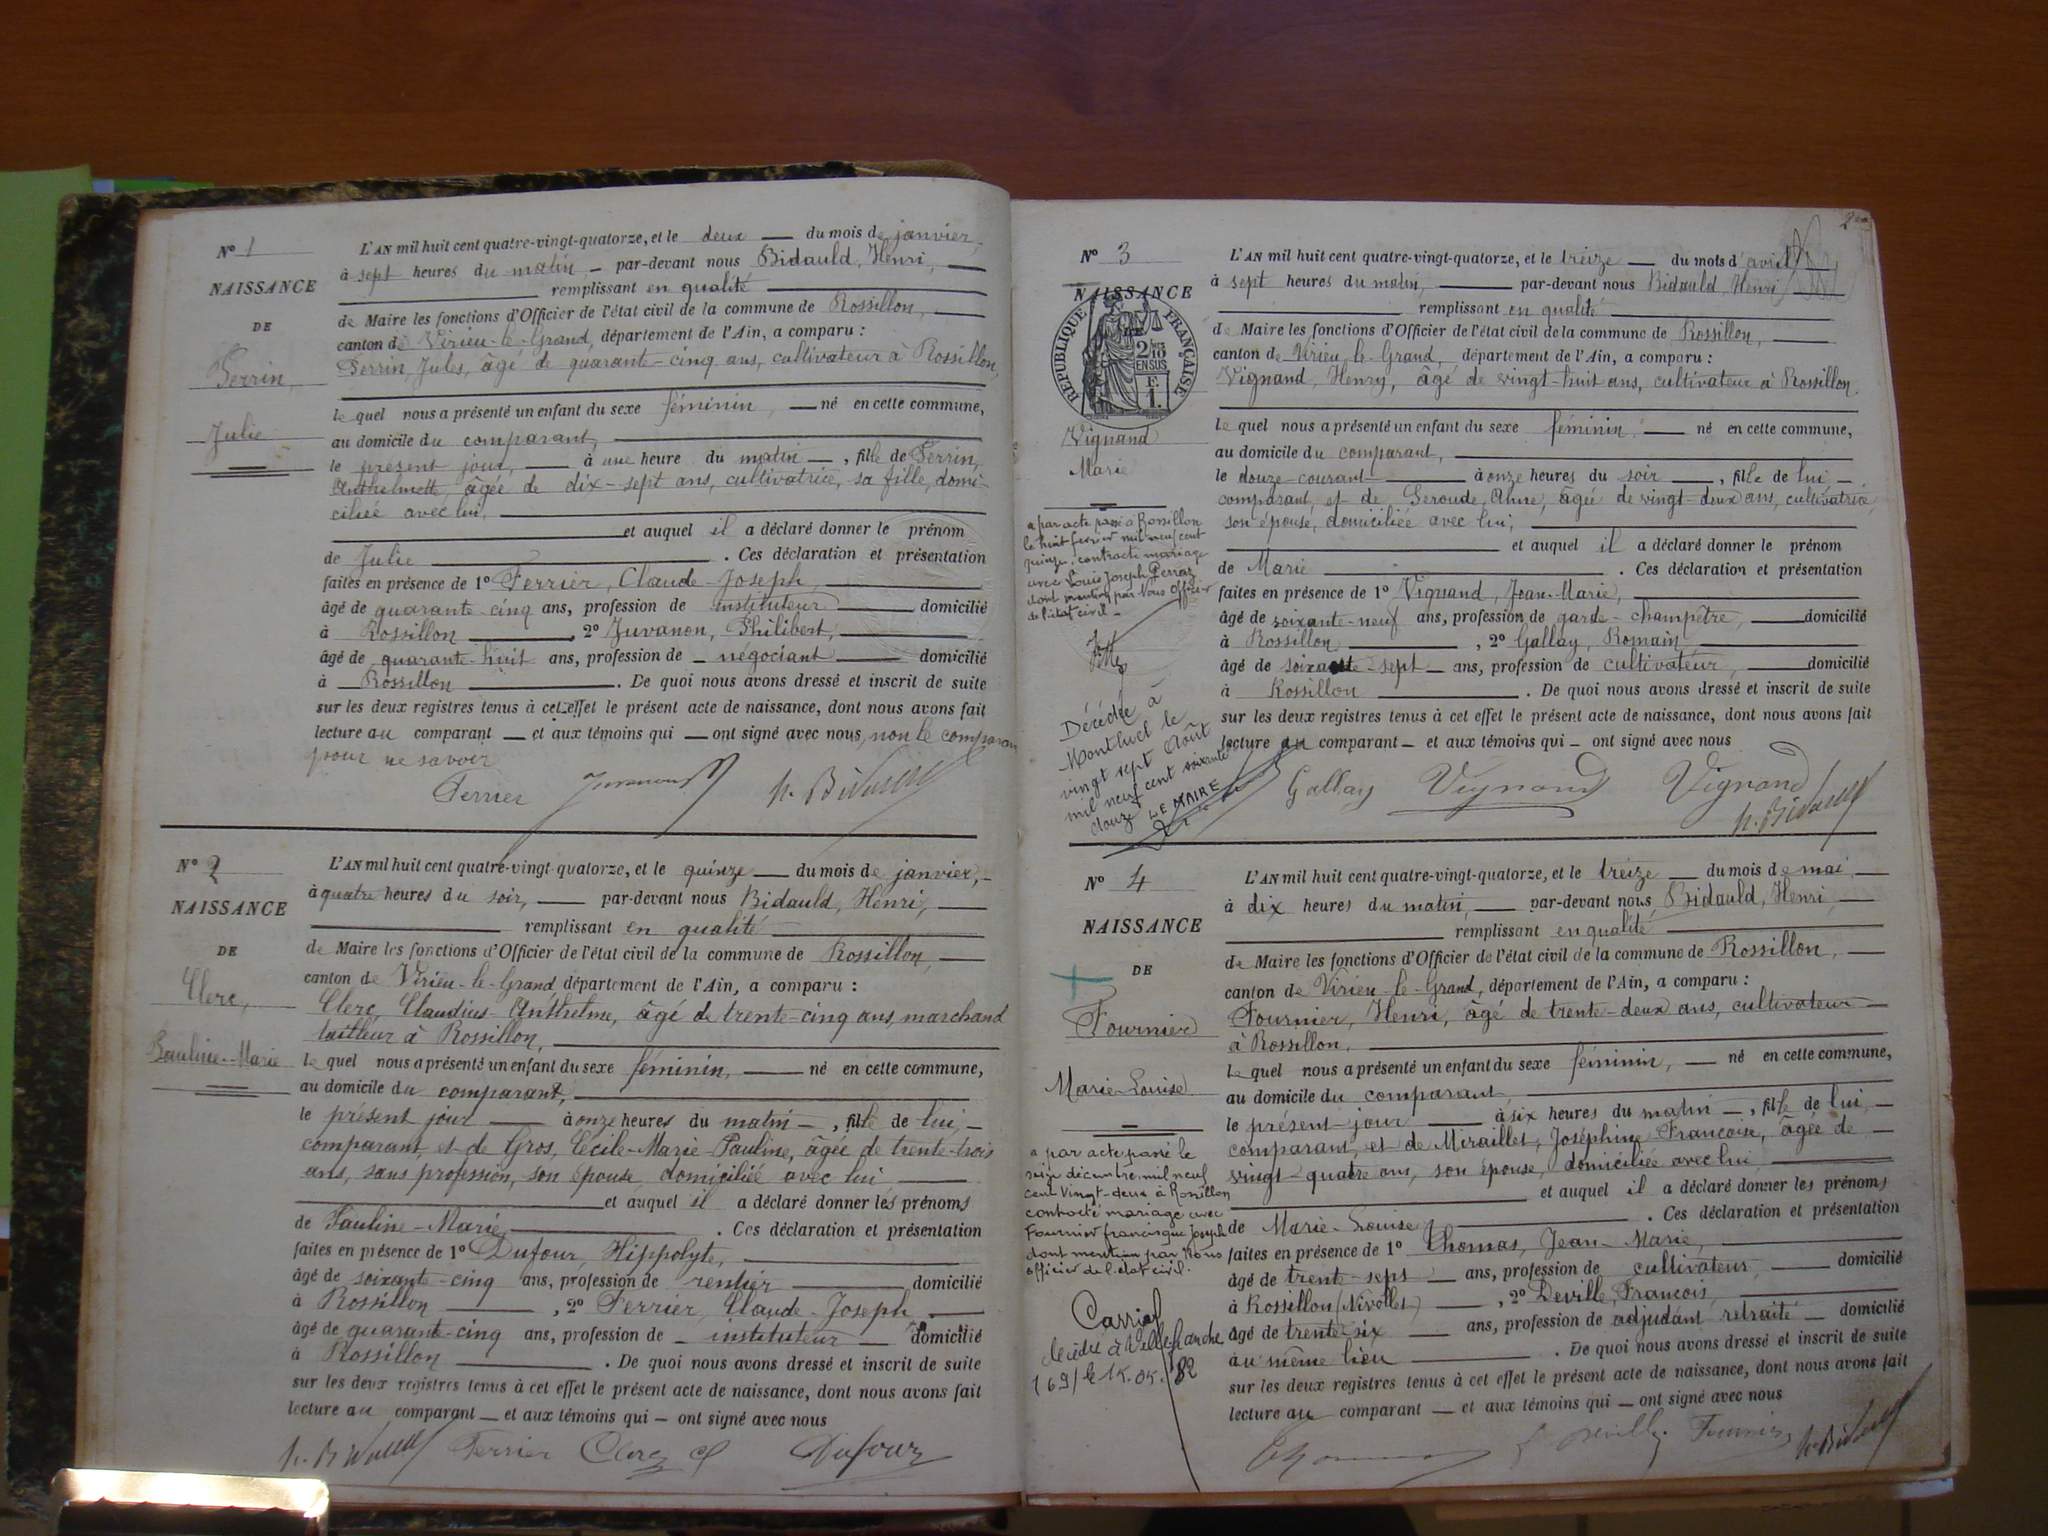 N° 1
NAISSANCE
DE
Perrin,
Julie
L'AN mil huit cent quatre-vingt-quatorze, et le deux du mois de janvier,
à sept heures du matin, par-devant nous Bidauld, Henri,
remplissant en qualité
de Maire les fonctions d'Officier de l'état civil de la commune de Rossillon,
canton de Virieu-le-Grand, département de l'Ain, a comparu :
Perrin, Jules, âgé de quarante-cinq ans, cultivateur à Rossillon,
le quel nous a présenté un enfant du sexe féminin, né en cette commune,
au domicile du comparant,
le présent jour, à une heure du matin, fille de Perrin,
Anthelmette, âgée de dix-sept ans, cultivatrice, sa fille, domi-
ciliée avec lui,
et auquel il a déclaré donner le prénom
de Julie. Ces déclaration et présentation
faites en présence de 1° Ferrier, Claude-Joseph,
âgé de quarante-cinq ans, profession de instituteur domicilié
à Rossillon, 2° Juvanon, Philibert,
âgé de quarante-huit ans, profession de négociant domicilié
à Rossillon. De quoi nous avons dressé et inscrit de suite
sur les deux registres tenus à cet effet le présent acte de naissance, dont nous avons fait
lecture au comparant et aux témoins qui ont signé avec nous, non le comparant
pour ne savoir
Ferrier H. Bidauld
N° 2
NAISSANCE
DE
Clerc,
Pauline-Marie
L'AN mil huit cent quatre-vingt-quatorze, et le quinze du mois de janvier,
à quatre heures du soir, par-devant nous Bidauld, Henri,
remplissant en qualité
de Maire les fonctions d'Officier de l'état civil de la commune de Rossillon,
canton de Virieu-le-Grand département de l'Ain, a comparu :
Clerc, Claudius-Anthelme, âgé de trente-cinq ans, marchand
tailleur à Rossillon,
le quel nous a présenté un enfant du sexe féminin, né en cette commune,
au domicile du comparant,
le présent jour à onze heures du matin, fille de lui
comparant, et de Gros, Cécile-Marie-Pauline, âgée de trente-trois
ans, sans profession, son épouse, domiciliée avec lui
et auquel il a déclaré donner les prénoms
de Pauline-Marie. Ces déclaration et présentation
faites en présence de 1° Dufour, Hippolyte,
âgé de soixante-cinq ans, profession de rentier domicilié
à Rossillon, 2° Ferrier, Claude-Joseph
âgé de quarante-cinq ans, profession de instituteur domicilié
à Rossillon. De quoi nous avons dressé et inscrit de suite
sur les deux registres tenus à cet effet le présent acte de naissance, dont nous avons fait
lecture au comparant et aux témoins qui ont signé avec nous
H. Bidauld Ferrier Clerc Dufour
N° 3
NAISSANCE
DE
RÉPUBLIQUE FRANÇAISE
2/10
EN SUS
F.
1.
Vignand
Marie
a par acte passé à Rossillon
le huit février mil neuf cent
quinze, contracté mariage
avec Louis Joseph Perraz
dont mention par Nous Officier
de l'état civil
Décédée à
Montluel le
vingt sept Août
mil neuf cent soixante
douze LE MAIRE
L'AN mil huit cent quatre-vingt-quatorze, et le treize du mois d'avril
à sept heures du matin, par-devant nous Bidauld, Henri
remplissant en qualité
de Maire les fonctions d'Officier de l'état civil de la commune de Rossillon,
canton de Virieu-le-Grand, département de l'Ain, a comparu :
Vignand, Henry, âgé de vingt-huit ans, cultivateur à Rossillon.
le quel nous a présenté un enfant du sexe féminin, né en cette commune,
au domicile du comparant,
le douze courant à onze heures du soir, fille de lui
comparant, et de Geroude, Anne, âgée de vingt-deux ans, cultivatrice,
son épouse, domiciliée avec lui,
et auquel il a déclaré donner le prénom
de Marie. Ces déclaration et présentation
faites en présence de 1° Vignand, Jean-Marie,
âgé de soixante-neuf ans, profession de garde-champêtre, domicilié
à Rossillon, 2° Gallay, Romain,
âgé de soixante-sept ans, profession de cultivateur, domicilié
à Rossillon. De quoi nous avons dressé et inscrit de suite
sur les deux registres tenus à cet effet le présent acte de naissance, dont nous avons fait
lecture au comparant et aux témoins qui ont signé avec nous
Gallay Vignand Vignand
H. Bidauld
N° 4
NAISSANCE
DE
Fournier
Marie-Louise
a par acte passé le
seize décembre mil neuf
cent Vingt-deux à Rossillon
contracté mariage avec
Fournier francisque Joseph
dont mention par Nous
officier de l'état civil.
décédée à Villefranche
(69) le 15.05.82
L'AN mil huit cent quatre-vingt-quatorze, et le treize du mois de mai
à dix heures du matin, par-devant nous Bidauld, Henri,
remplissant en qualité
de Maire les fonctions d'Officier de l'état civil de la commune de Rossillon,
canton de Virieu-le-Grand, département de l'Ain, a comparu :
Fournier, Henri, âgé de trente-deux ans, cultivateur
à Rossillon,
le quel nous a présenté un enfant du sexe féminin, né en cette commune,
au domicile du comparant,
le présent jour à six heures du matin, fille de lui
comparant, et de Miraillet, Joséphine-Françoise, âgée de
vingt-quatre ans, son épouse, domiciliée avec lui
et auquel il a déclaré donner les prénoms
de Marie-Louise. Ces déclaration et présentation
faites en présence de 1° Thomas, Jean-Marie,
âgé de trente-sept ans, profession de cultivateur, domicilié
à Rossillon (Nivollet), 2° Deville, François,
âgé de trente-six ans, profession de adjudant retraité domicilié
au même lieu. De quoi nous avons dressé et inscrit de suite
sur les deux registres tenus à cet effet le présent acte de naissance, dont nous avons fait
lecture au comparant et aux témoins qui ont signé avec nous
Thomas Deville Fournier H. Bidauld